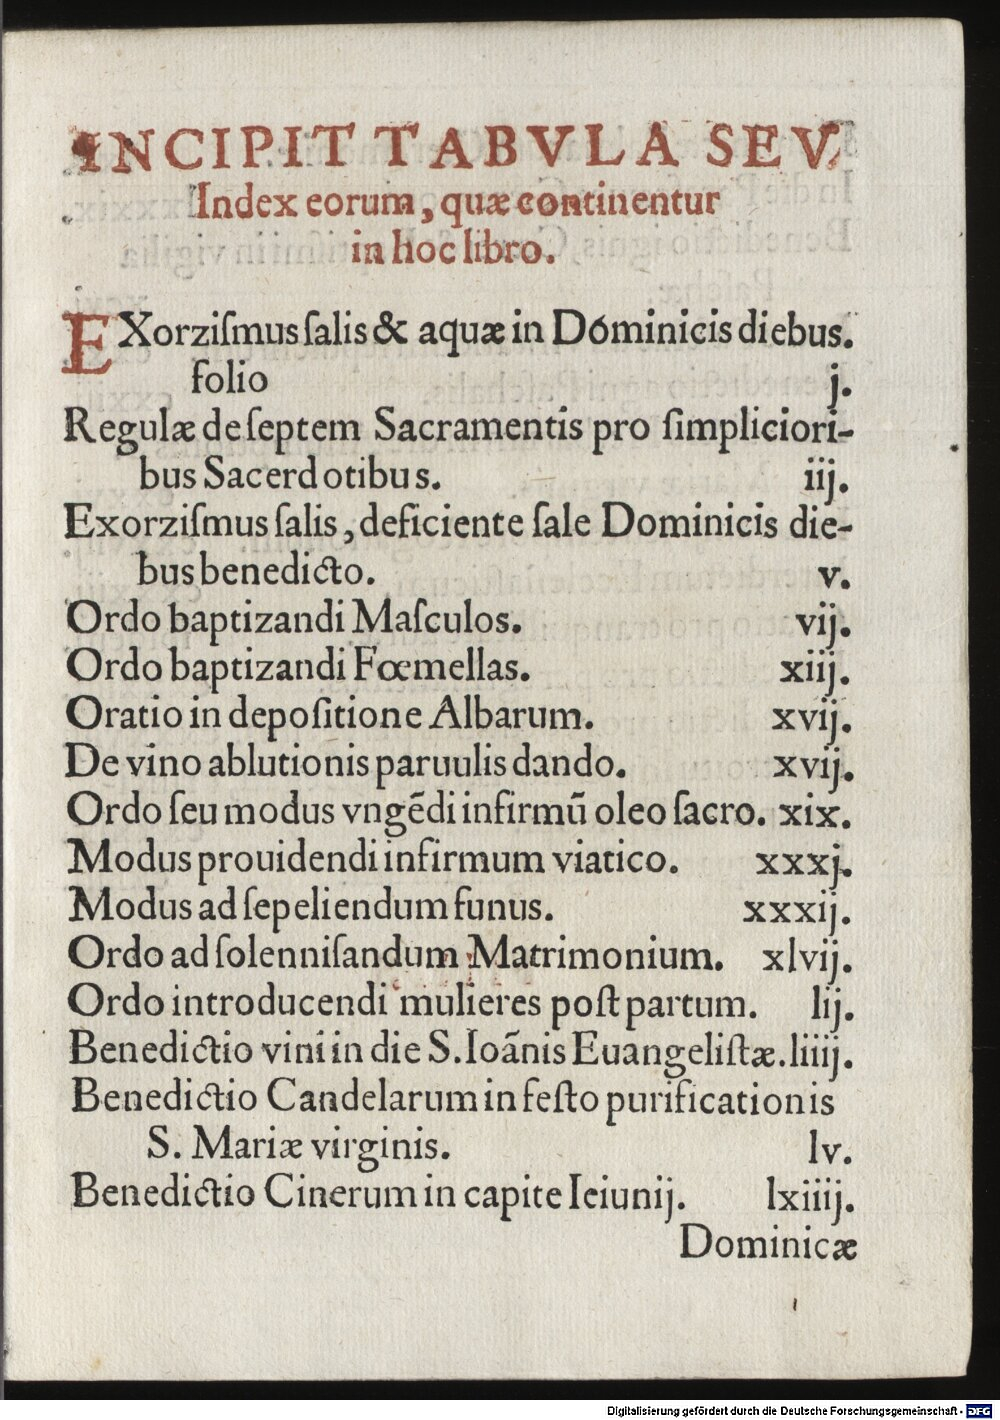 INCIPIT TABVLA SEV
Index eorum, quæ continentur
in hoc libro.
EXorziſmus ſalis & aquæ in Dominicis diebus.
folio j.
Regulæ de ſeptem Sacramentis pro ſimpliciori-
bus Sacerdotibus. iij.
Exorziſmus ſalis, deficiente ſale Dominicis die-
bus benedicto. v.
Ordo baptizandi Maſculos. vij.
Ordo baptizandi Fœmellas. xiij.
Oratio in depoſitione Albarum. xvij.
De vino ablutionis paruulis dando. xvij.
Ordo ſeu modus vngēdi infirmū oleo ſacro. xix.
Modus prouidendi infirmum viatico. xxxj.
Modus ad ſepeliendum funus. xxxij.
Ordo ad ſolenniſandum Matrimonium. xlvij.
Ordo introducendi mulieres poſt partum. lij.
Benedictio vini in die S. Ioānis Euangeliſtæ. liiij.
Benedictio Candelarum in feſto purificationis
S. Mariæ virginis. lv.
Benedictio Cinerum in capite Ieiunij. lxiiij.
Dominicæ
Digitalisierung gefördert durch die Deutsche Forschungsgemeinschaft - DFG